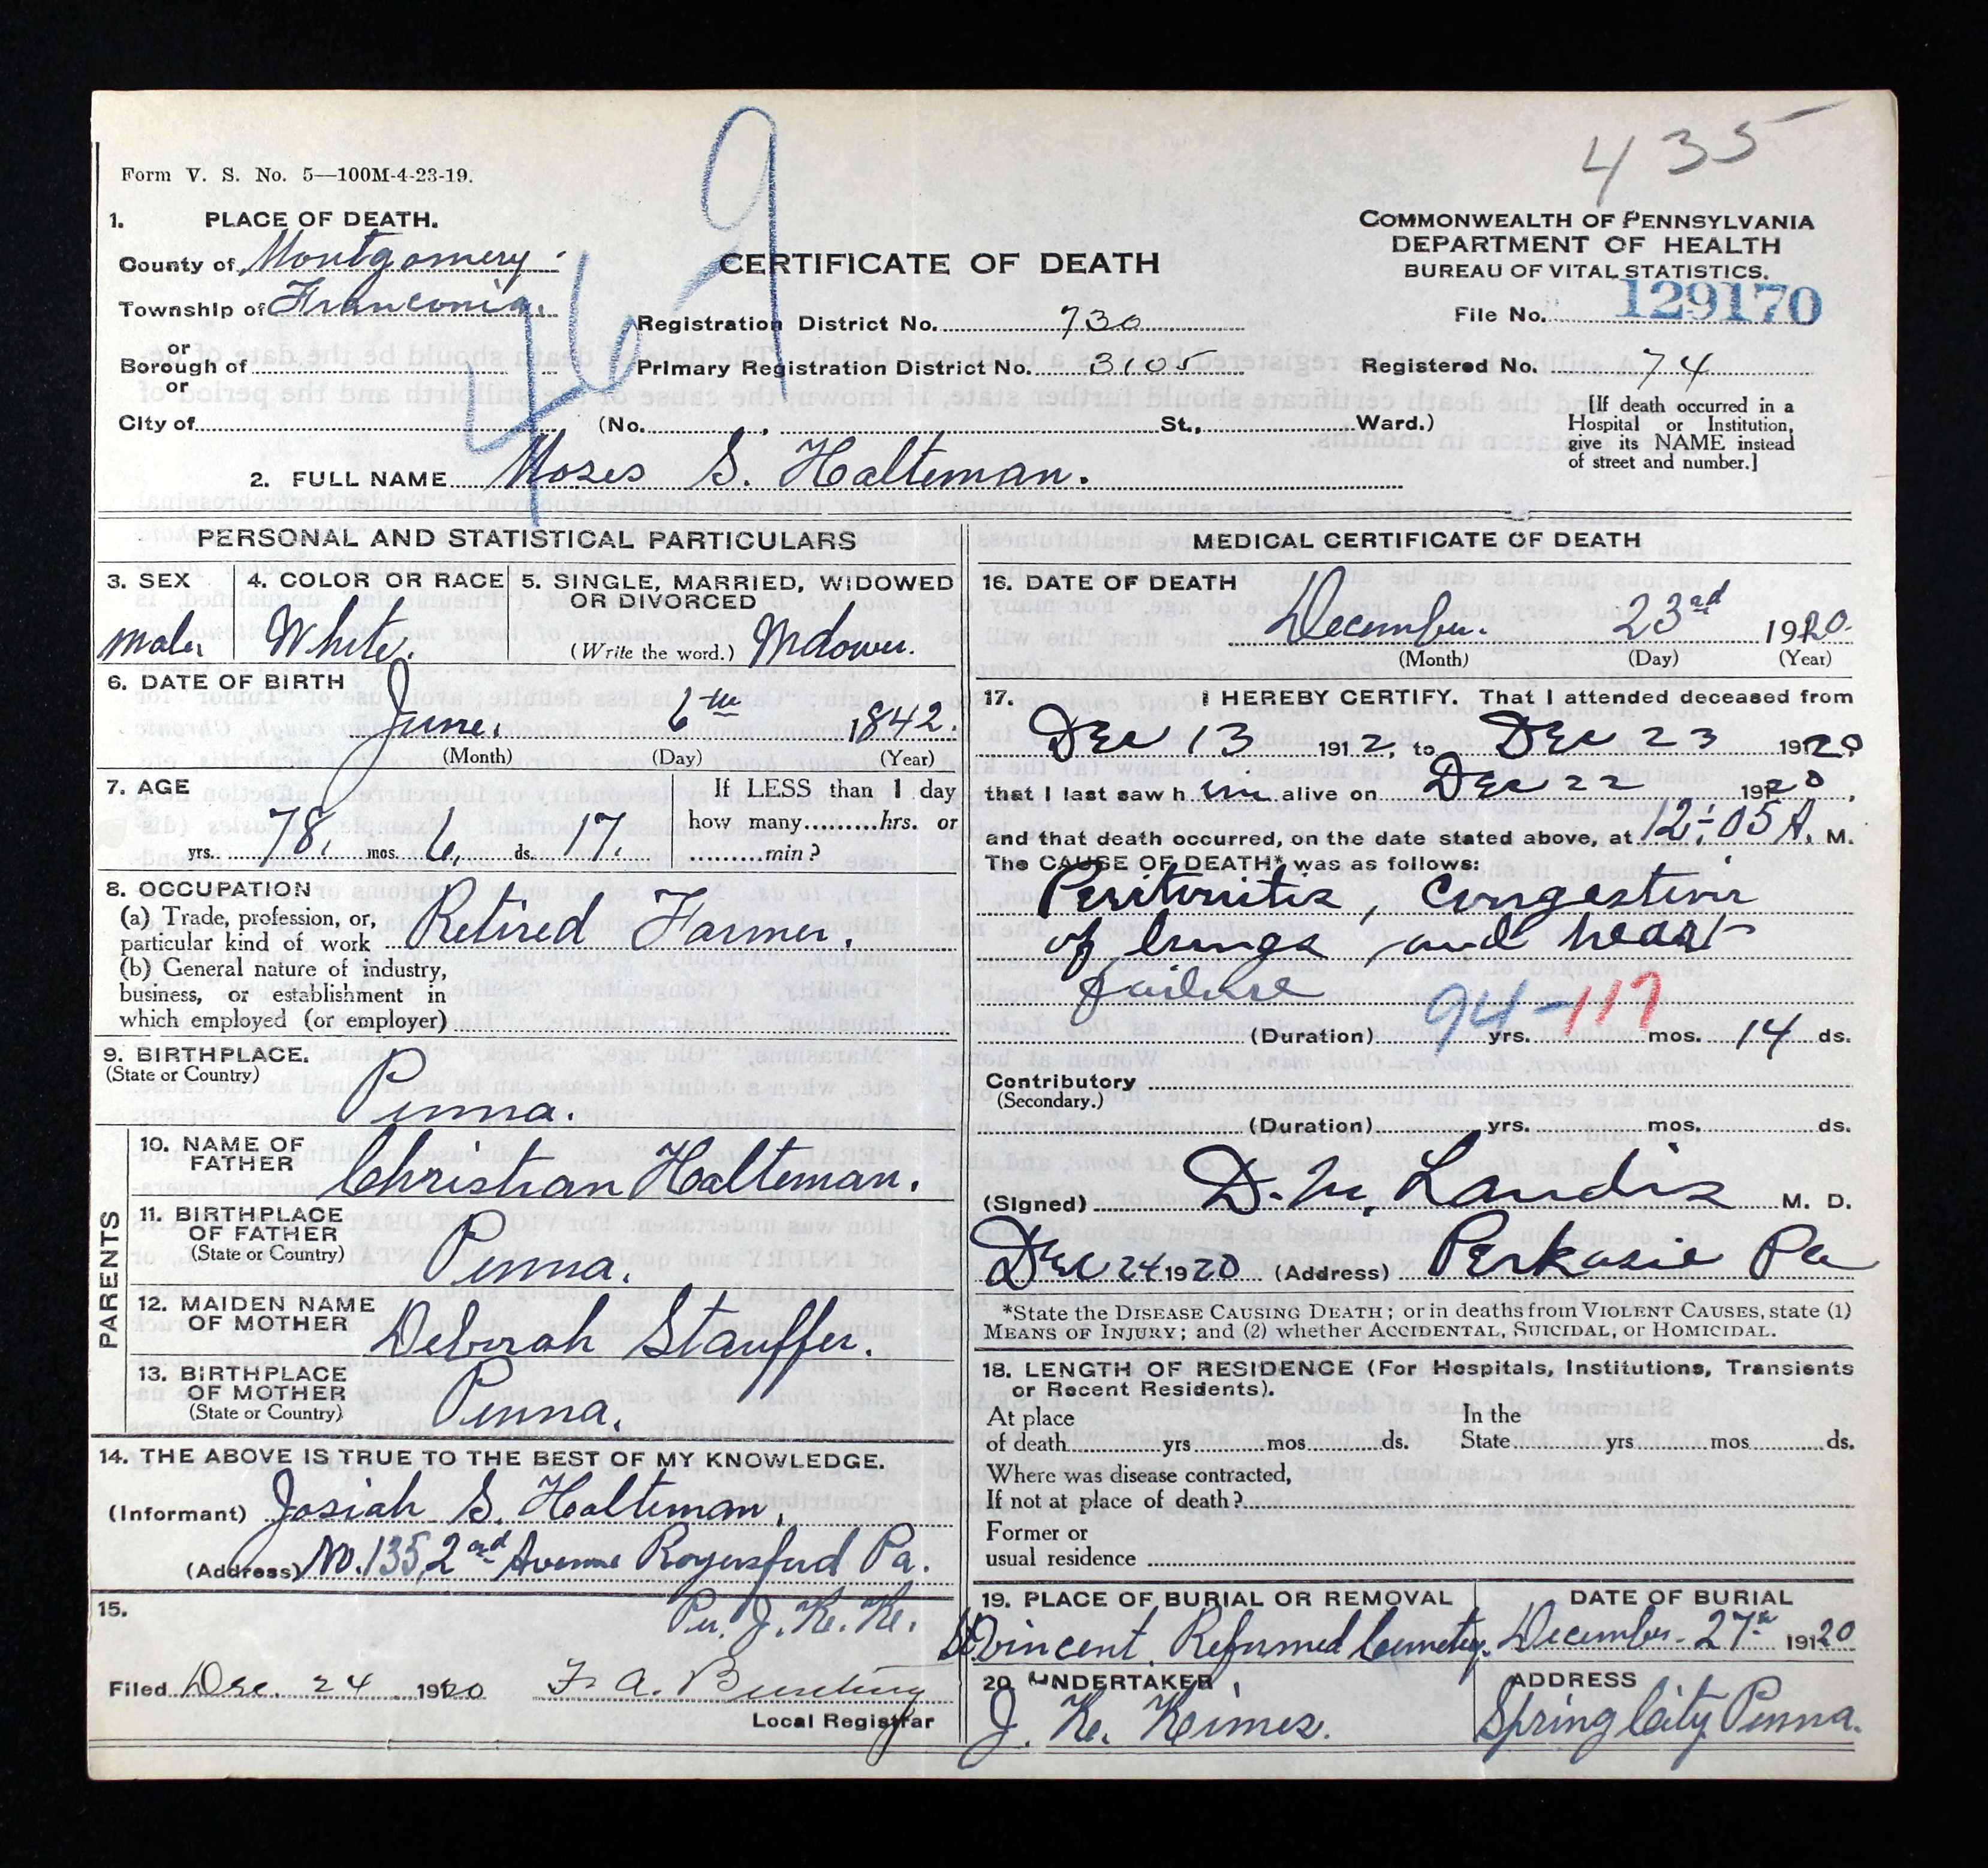 435
Form V. S. No. 5—100M-4-23-19.
469
1. PLACE OF DEATH.
County of Montgomery
Township of Franconia.
or
Borough of
or
City of
CERTIFICATE OF DEATH
Registration District No. 730
Primary Registration District No. 3105
(No. , St., Ward.)
COMMONWEALTH OF PENNSYLVANIA
DEPARTMENT OF HEALTH
BUREAU OF VITAL STATISTICS.
File No. 129170
Registered No. 74
[If death occurred in a
Hospital or Institution,
give its NAME instead
of street and number.]
2. FULL NAME Moses S. Halteman.
PERSONAL AND STATISTICAL PARTICULARS
3. SEX
Male.
4. COLOR OR RACE
White.
5. SINGLE, MARRIED, WIDOWED
OR DIVORCED
(Write the word.) Widower.
6. DATE OF BIRTH
June. 6th 1842.
(Month) (Day) (Year)
7. AGE
78. yrs. 6. mos. 17. ds.
If LESS than 1 day
how many.........hrs. or
.........min?
8. OCCUPATION
(a) Trade, profession, or,
particular kind of work Retired Farmer.
(b) General nature of industry,
business, or establishment in
which employed (or employer)
9. BIRTHPLACE.
(State or Country)
Penna.
PARENTS
10. NAME OF
FATHER
Christian Halteman.
11. BIRTHPLACE
OF FATHER
(State or Country)
Penna.
12. MAIDEN NAME
OF MOTHER
Deborah Stauffer.
13. BIRTHPLACE
OF MOTHER
(State or Country)
Penna.
14. THE ABOVE IS TRUE TO THE BEST OF MY KNOWLEDGE.
(Informant) Josiah S. Halteman,
(Address) No. 135, 2nd Avenue Royersford Pa.
Per. J. K. K.
15.
Filed Dec. 24 1920 F. A. Bunting
Local Registrar
MEDICAL CERTIFICATE OF DEATH
16. DATE OF DEATH
December. 23rd 1920.
(Month) (Day) (Year)
17. I HEREBY CERTIFY. That I attended deceased from
Dec 13 1912, to Dec 23 1920
that I last saw him alive on Dec 22 1920,
and that death occurred, on the date stated above, at 12:05 A. M.
The CAUSE OF DEATH* was as follows:
Peritonitis, Congestion
of lungs and heart
failure
94-117
(Duration) yrs. mos. 14 ds.
Contributory
(Secondary.)
(Duration) yrs. mos. ds.
(Signed) D. M. Landis M. D.
Dec 24 1920 (Address) Perkasie Pa
*State the DISEASE CAUSING DEATH; or in deaths from VIOLENT CAUSES, state (1)
MEANS OF INJURY; and (2) whether ACCIDENTAL, SUICIDAL, or HOMICIDAL.
18. LENGTH OF RESIDENCE (For Hospitals, Institutions, Transients
or Recent Residents).
At place
of death yrs mos ds.
In the
State yrs mos ds.
Where was disease contracted,
If not at place of death?
Former or
usual residence
19. PLACE OF BURIAL OR REMOVAL
Vincent. Reformed Cemetery.
DATE OF BURIAL
December. 27th 1920
20. UNDERTAKER
J. K. Keimes.
ADDRESS
Spring City Penna.